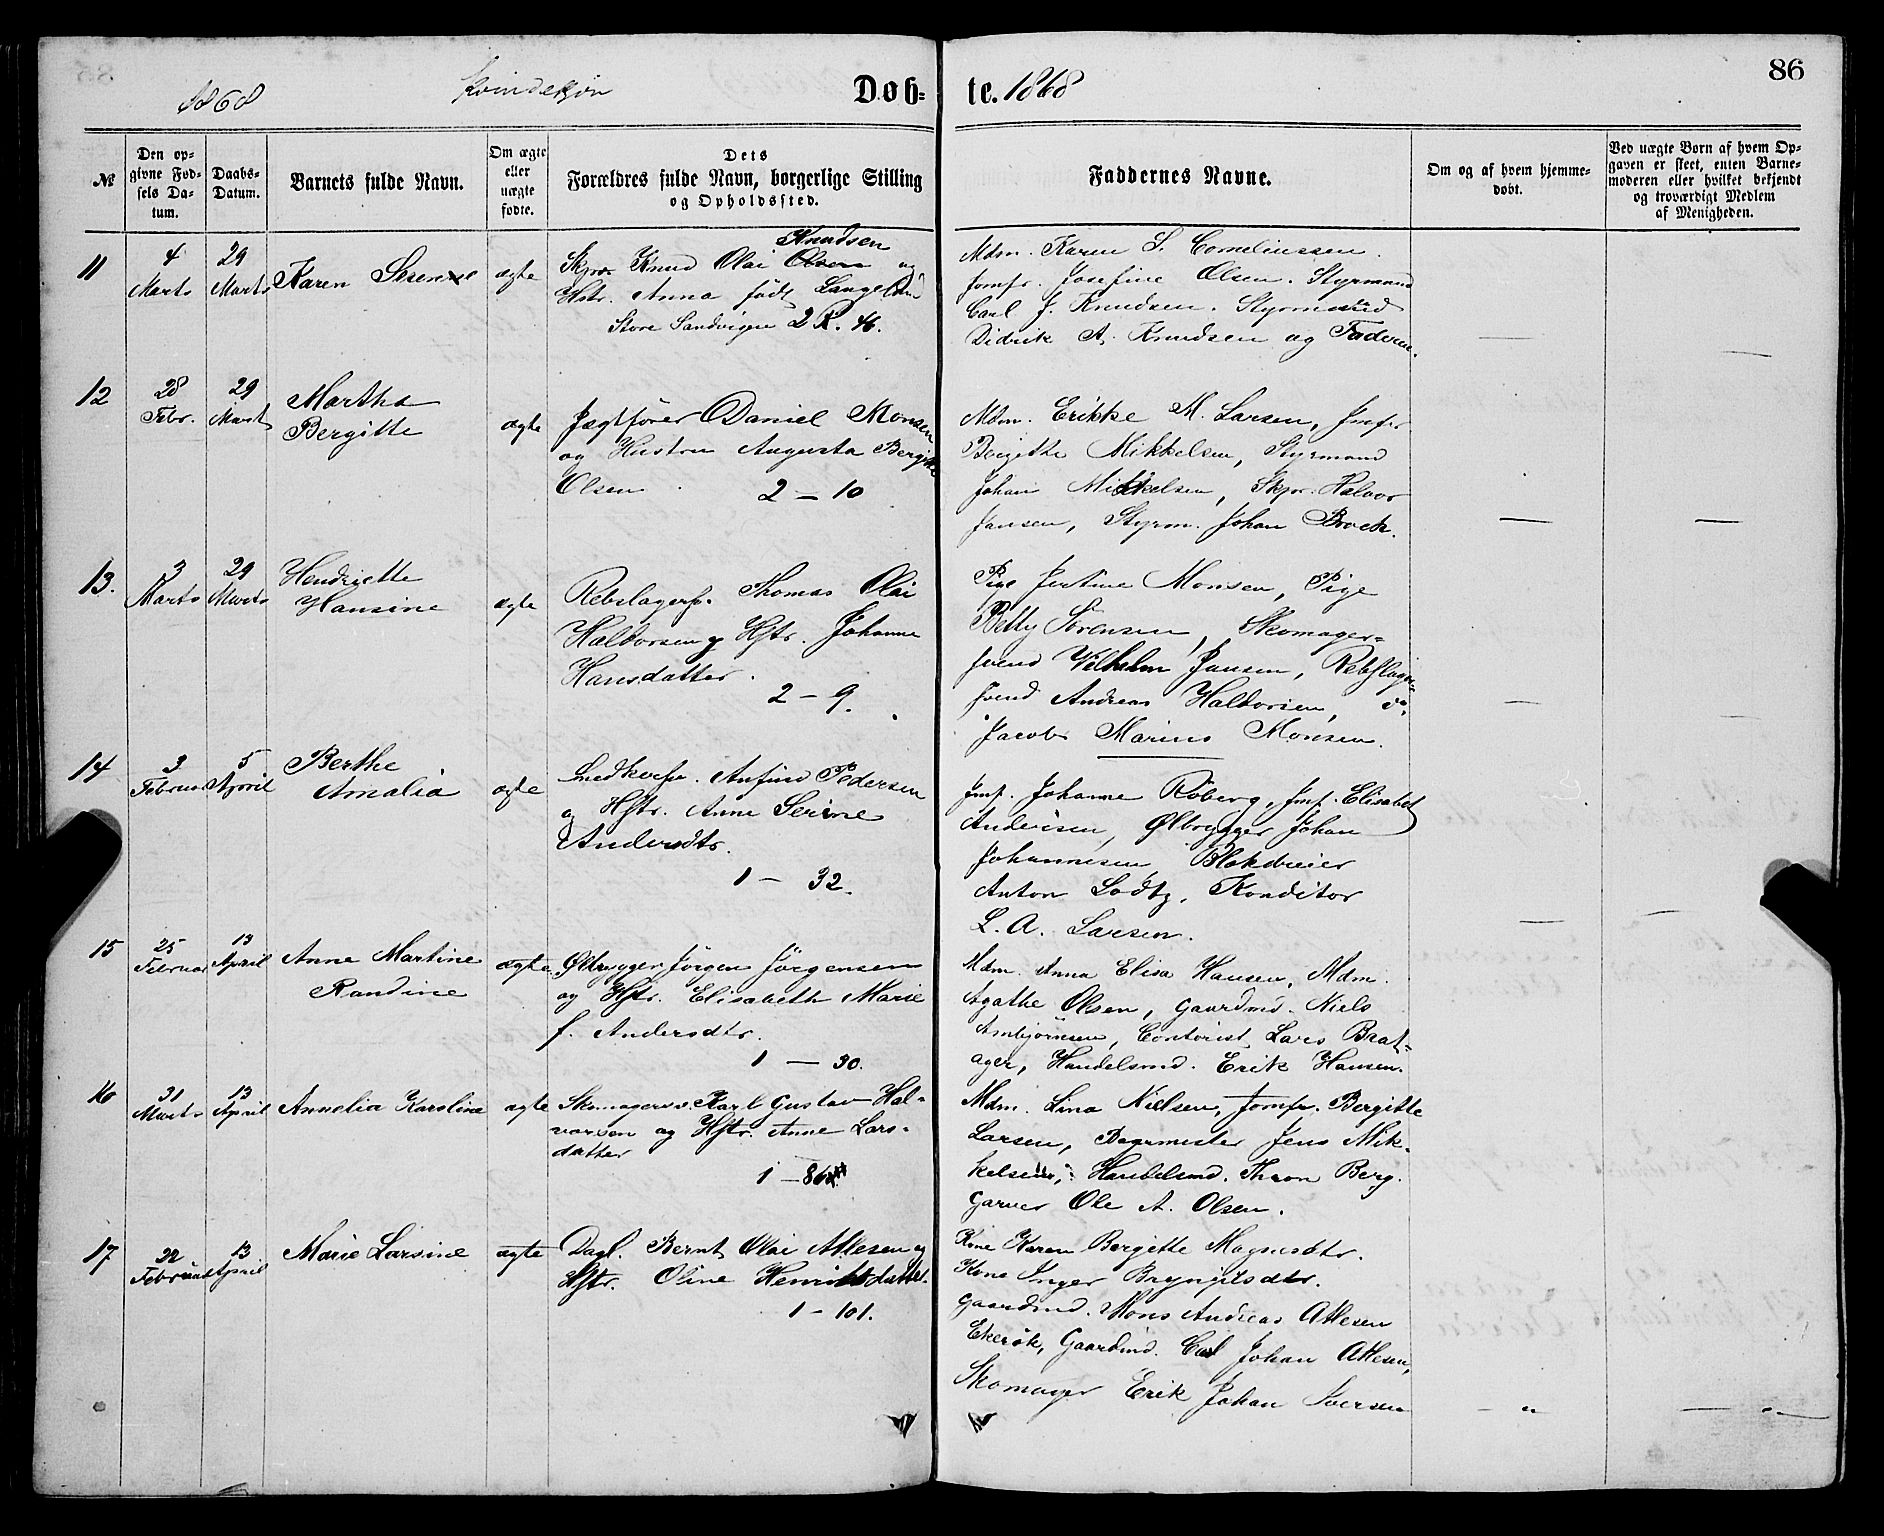 1868 Kvindekjøn Døb- te. 1868 86
№
Den op-
givne Fød-
sels Da-
tum.
Daabs-
Datum.
Barnets fulde Navn.
Om ægte
eller
uægte
fødte.
Dets
Forældres fulde Navn, borgerlige Stilling
og Opholdssted.
Faddernes Navne.
Om og af hvem hjemme-
døbt.
Ved uægte Børn af hvem Op-
gaven er skeet, enten Barne-
moderen eller hvilket bekjendt
og troværdigt Medlem
af Menigheden.
11
4
Marts
29
Marts
Karen
ægte
Knudsen
Skpr. Knud Olai Olsen og
Hstr. Anna født
Store Sandvigen 2 R. 46.
Mdm. Karen S. Corneliussen.
Jomfr. Josefine Olsen. Styrmand
Carl J. Knudsen. Styrmand
Didrik A. Knudsen og Faderen.
12
28
Febr.
29
Marts
Martha
Bergitte
ægte
Jægtfører Daniel Monsen
og Hustru Augusta Bergitte
Olsen
2 — 10
Mdm. Erikke M. Larsen, Jmfr
Bergitte Mikkelsen, Styrmand
Johan Mikkelsen, Skpr. Halvor
Jansen, Styrm. Johan Brock.
13.
3
Marts
29
Marts
Hendriette
Hansine
ægte
Rebslagersv. Thomas Olai
Halvorsen og Hstr. Johanne
Hansdatter.
2 — 9.
Pige Jertine Monsen, Pige
Betty Sørensen, Skomager-
svend Vilhelm Jansen, Rebslager-
svend Andreas Halvorsen, do
Jacob Marius Monsen.
14
3
Februar
5
April
Berthe
Amalia
ægte
Snedkersv. Anfind Pedersen
og Hstr. Anne Serine
Andersdtr.
1 — 32.
Jmf. Johanne Roberg, Jmf. Elisabet
Andersen, Ølbrygger Johan
Johannesen, Blokdreier
Anton Lodtz, Konditor
L. A. Larsen.
15
25
Februar
13
April
Anne Martine
Randine
ægte
Ølbrygger Jörgen Jörgensen
og Hstr. Elisabeth Marie
f. Andersdtr.
1 — 30.
Mdm. Anna Elisa Hansen, Mdm.
Agathe Olsen, Gaardmd. Niels
Ambjörnsen, Contorist Lars Brat-
ager, Handelsmd. Erik Hansen.
16
31
Marts
13
April
Annelia Karoline
ægte
Skomagersv. Karl Gustav Hal-
vorsen og Hstr. Anne Lars-
datter
1 —
Mdm. Lina Nielsen, Jomfr. Bergitte
Larsen, Bagermester Jens Mik-
kelsen, Handelsmd. Thron Berg.
Garver Ole A. Olsen.
17
22
Februar
13
April
Marie Larsine
ægte
Dagl. Bernt Olai Atlesen og
Hstr. Oline Henriksdatter.
1 — 101.
Kone Karen Bergitte Magnusdtr.
Kone Inger Bryngelsdtr.
Gaardmd. Mons Andreas Atlesen
Gaardmd. Carl Johan Atlesen,
Skomager Erik Johan Iversen